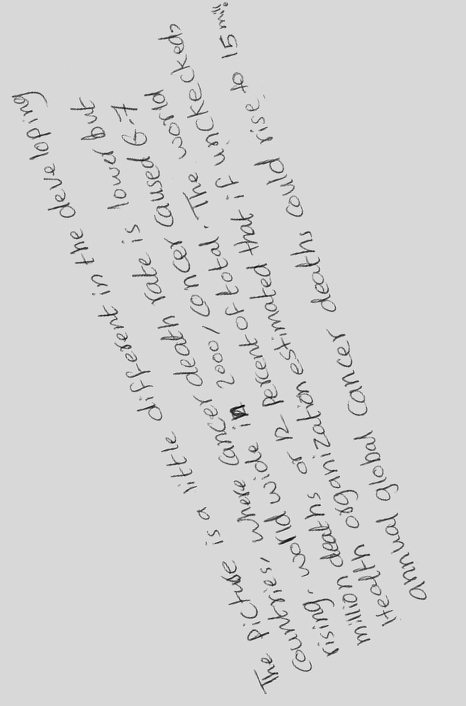 The Picture is a little different in the developing
Countries, where cancer death rate is lower but
rising. world wide in 2000, Cancer caused 6-7
million deaths or 12 percent of total. The world
Health organization estimated that if unckecked,
annual global cancer deaths could rise to 15 mill.